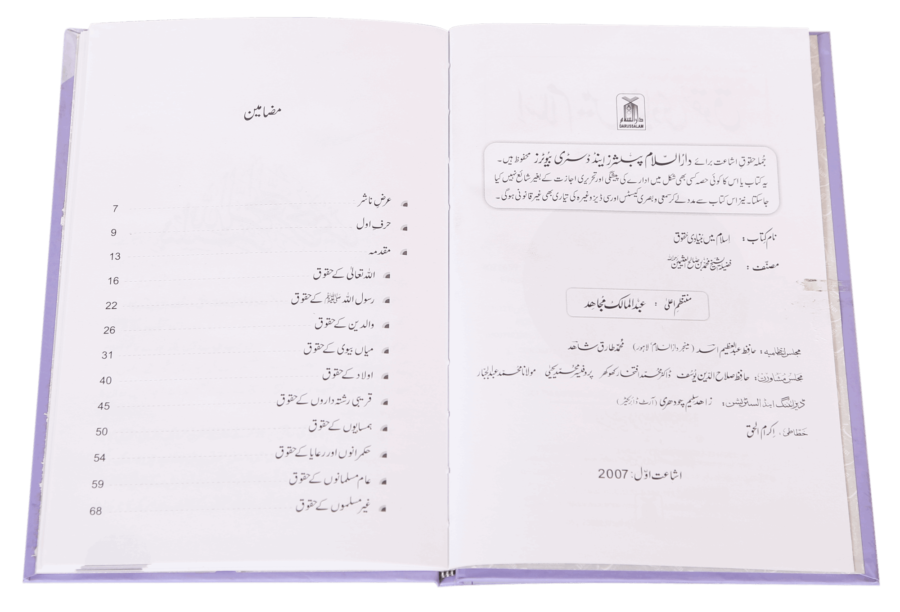 دارالسلام
DARUSSALAM
جملہ حقوق اشاعت برائے دارالسلام پبلشرز اینڈ ڈسٹری بیوٹرز محفوظ ہیں۔
یہ کتاب یا اس کا کوئی حصہ کسی بھی شکل میں ادارے کی پیشگی اور تحریری اجازت کے بغیر شائع نہیں کیا
جاسکتا۔ نیز اس کتاب سے مدد لے کر سمعی و بصری کیسٹس اور سی ڈیز وغیرہ کی تیاری بھی غیر قانونی ہوگی۔
نام کتاب : اسلام میں بنیادی حقوق
مصنف : فضیلۃ الشیخ محمد بن صالح العثیمین
منتظم اعلیٰ : عبدالمالک مجاہد
مجلس انتظامیہ : حافظ عبدالعظیم اسد (مینیجر دارالسلام لاہور) محمد طارق شاہد
مجلس مشاورت : حافظ صلاح الدین یوسف ڈاکٹر محمد افتخار کھوکھر پروفیسر محمد یحییٰ مولانا محمد عبدالجبار
ڈیزائننگ اینڈ السٹریشن : زاہد سلیم چودھری (آرٹ ڈائریکٹر)
خطاطی : اکرام الحق
اشاعت اوّل : 2007
مضامین
عرض ناشر 7
حرف اول 9
مقدمہ 13
اللہ تعالیٰ کے حقوق 16
رسول اللہ ﷺ کے حقوق 22
والدین کے حقوق 26
میاں بیوی کے حقوق 31
اولاد کے حقوق 40
قریبی رشتہ داروں کے حقوق 45
ہمسایوں کے حقوق 50
حکمرانوں اور رعایا کے حقوق 54
عام مسلمانوں کے حقوق 59
غیر مسلموں کے حقوق 68